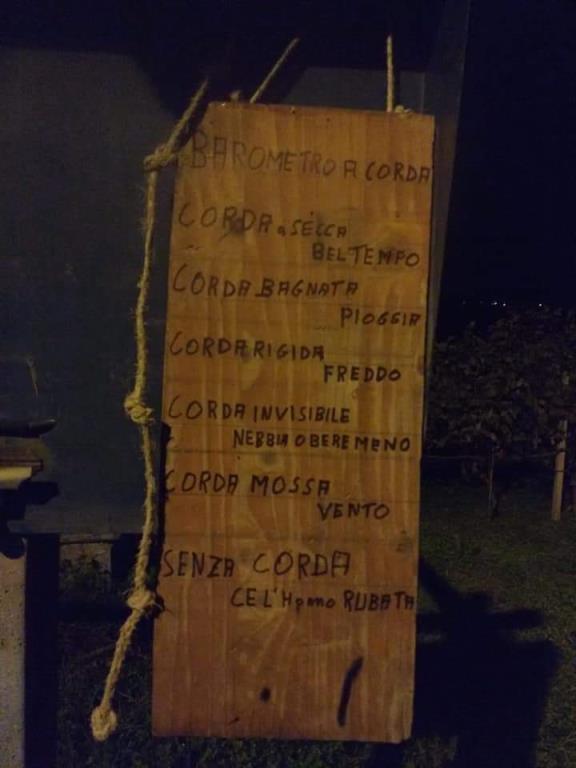 BAROMETRO A CORDA
CORDA SECCA
BEL TEMPO
CORDA BAGNATA
PIOGGIA
CORDA RIGIDA
FREDDO
CORDA INVISIBILE
NEBBIA O BERE MENO
CORDA MOSSA
VENTO
SENZA CORDA
CE L'Hanno RUBATA